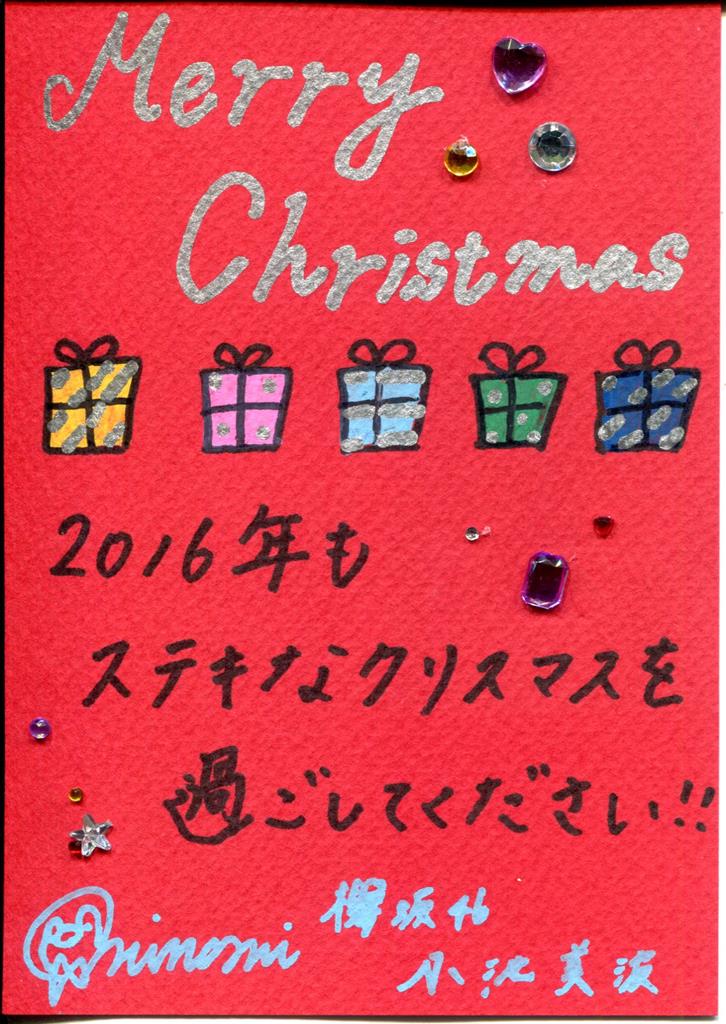 Merry
Christmas
2016年も
ステキなクリスマスを
過ごしてください!!
欅坂46
minami
小池美波